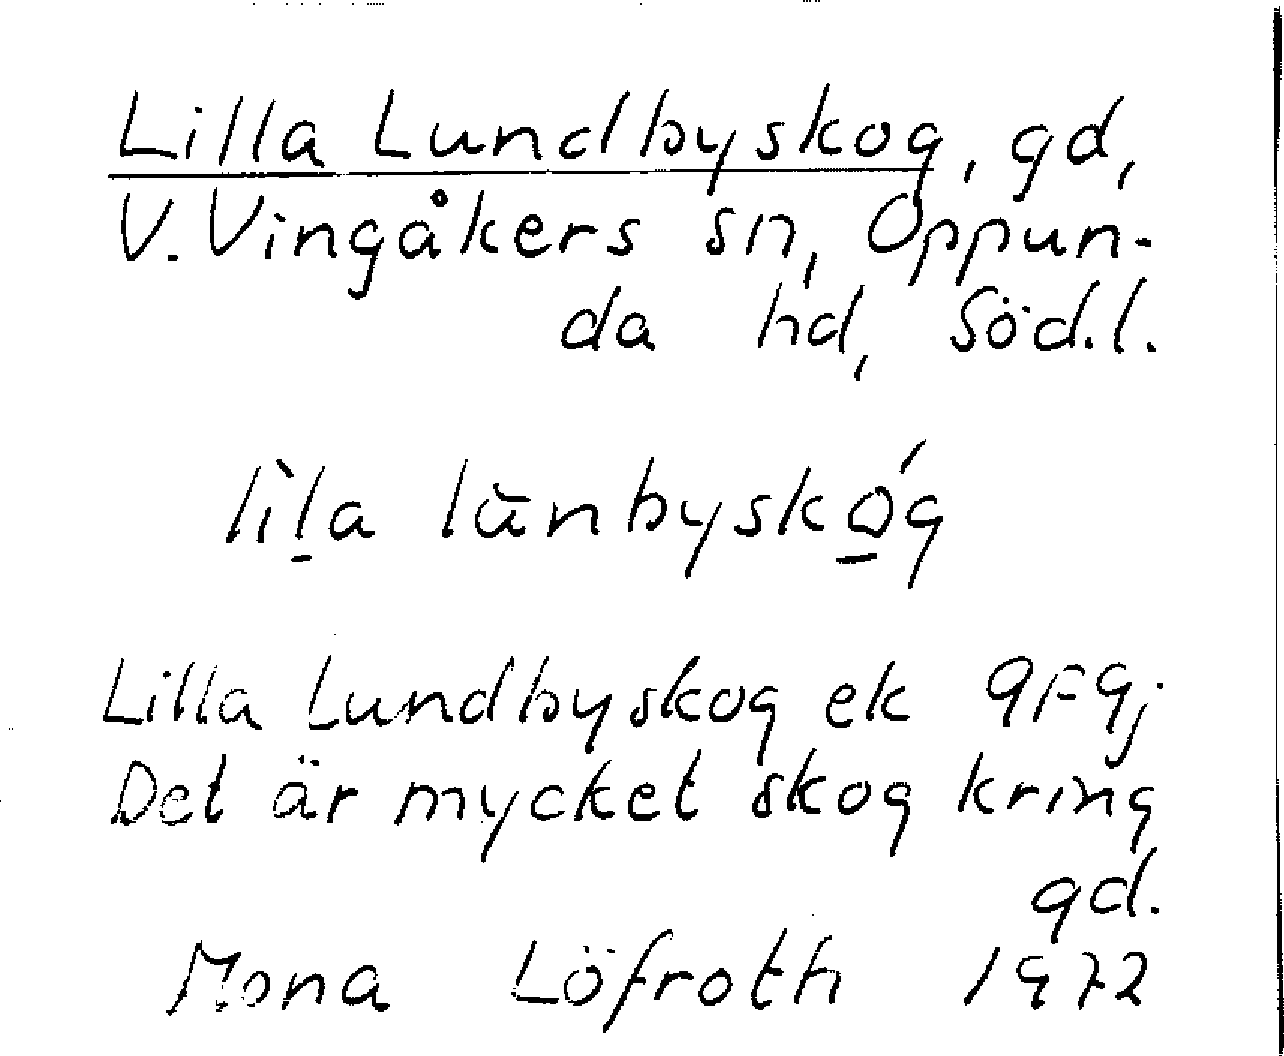 Lilla Lundbyskog, gd,
V. Vingåkers sn, Oppun-
da hd, Söd.l.
lìl̠a lŭnbyskó̠g
Lilla Lundbyskog ek 9F9j
Det är mycket skog kring
gd.
Mona Löfroth 1972